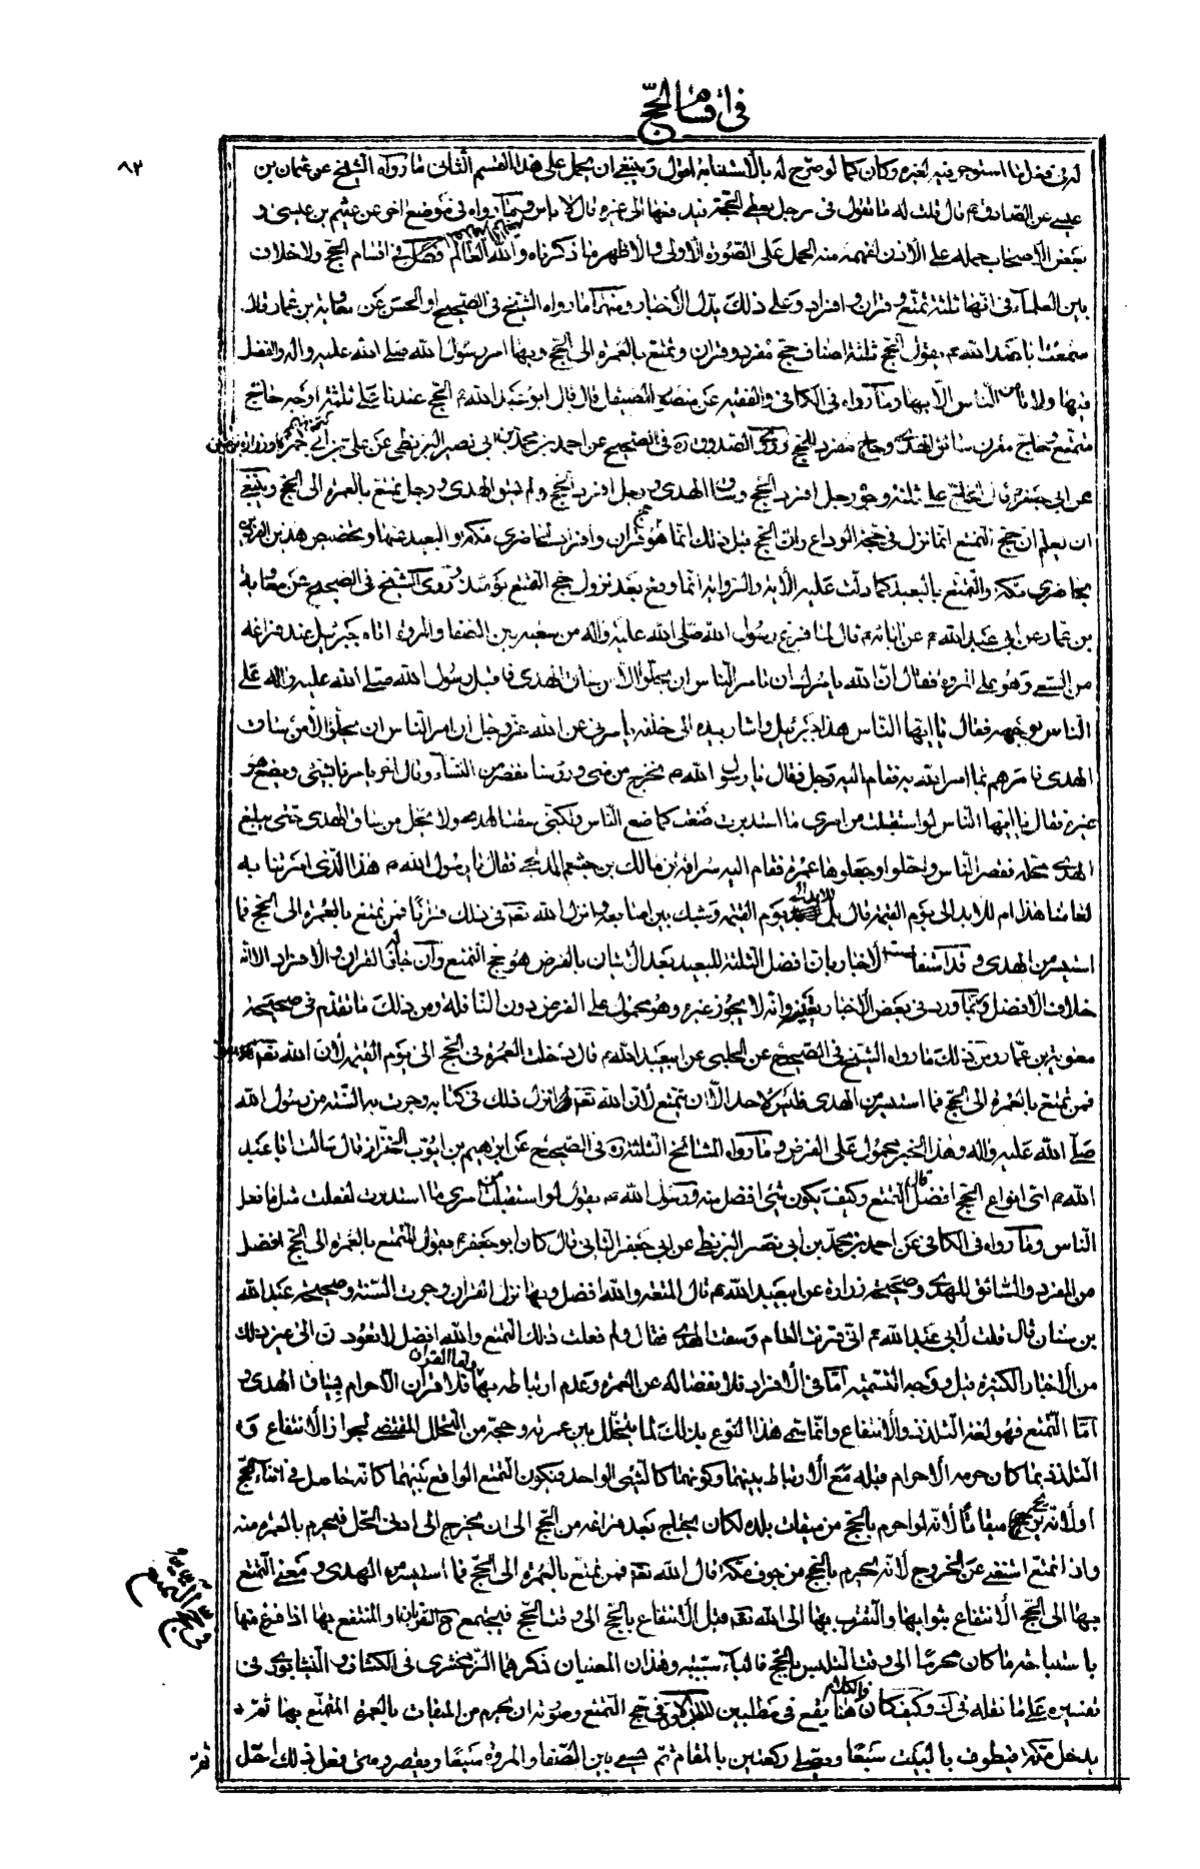 في اقسام الحجّ
٨٣
له في فعل ما استوجر فيه لغيره وكان كما لو صرّح له بالاستنابة اقول وينبغي ان يحمل على هذا القسم الثاني ما رواه الشيخ عن عثمان بن
عيسى عن الصادق ع قال قلت له ما تقول في رجل يعطى الحجّة فيدفعها الى غيره قال لا باس وما رواه في موضع اخر عن عثيم بن عيسى و
بعض الاصحاب حمله على الاذن الحمل على الصّورة الاولى والاظهر ما ذكرناه والله العالم فصل في اقسام الحجّ ولا خلاف
بين العلماء في انّها ثلثة تمتّع وقران وافراد وعلى ذلك يدلّ الاخبار ومنها ما رواه الشيخ في الصّحيح او الحسن عن معاوية بن عمار قال
سمعت ابا عبد الله ع يقول الحجّ ثلثة اصناف حجّ مفرد وقران وتمتّع بالعمرة الى الحجّ وبها امر رسول الله صلى الله عليه واله والفضل
فيها ولا نأمر الناس الّا بها وما رواه في الكافي والفقيه عن منصور الصّيقل قال قال ابو عبد الله ع الحجّ عندنا على ثلثة اوجه حاجّ
متمتّع وحاجّ مقرن سائق الهدى وحاجّ مفرد للحجّ وروى الصّدوق ره في الصّحيح عن احمد بن محمّد بن ابي نصر البزنطي عن علي بن ابي حمزة
عن ابي جعفر ع قال الحاجّ على ثلثة وجوه رجل افرد الحجّ وساق الهدى ورجل افرد الحجّ ولم يسق الهدى ورجل تمتّع بالعمرة الى الحجّ وينبغي
ان يعلم ان حجّ التمتع انّما نزل في حجّة الوداع وان الحجّ قبل ذلك انّما هو قران وافراد لحاضري مكّة والبعيد عنها وتخصيص هذين الفردين
بحاضري مكّة والتمتع بالبعيد كما دلّت عليه الاية والرواية انّما وقع بعد نزول حجّ التمتع روى الشيخ في الصحيح عن معاوية
بن عمار عن ابي عبد الله ع عن ابائه ع قال لمّا فرغ رسول الله صلى الله عليه واله من سعيه بين الصّفا والمروة اتاه جبرئيل عند فراغه
من السعى وهو على المروة فقال انّ الله يامرك ان تامر النّاس ان يحلّوا الّا من ساق الهدى فاقبل رسول الله صلى الله عليه واله على
الناس بوجهه فقال يا ايّها النّاس هذا جبرئيل واشار بيده الى خلفه يامرني عن الله عزّ وجلّ ان امر الناس ان يحلّوا الّا من ساق
الهدى فامرهم بما امر الله به فقام اليه رجل فقال يا رسول الله ص نخرج من منى ورؤسنا تقطر من النساء وقال اخر يامرنا بشيء ويصنع هو
غيره فقال يا ايّها النّاس لو استقبلت من امرى ما استدبرت صنعت كما صنع النّاس ولكنّي سقت الهدى ولا يحلّ من ساق الهدى حتّى يبلغ
الهدى محلّه فقصر النّاس واحلّوا وجعلوها عمرة فقام اليه سراقة بن مالك بن جشعم المدلجي فقال يا رسول الله ص هذا الّذي امرتنا به
لعامنا هذا ام للابد الى يوم القيمة قال بل للابد الى يوم القيمة وشبك بين اصابعه وانزل الله تعالى في ذلك قرانا فمن تمتع بالعمرة الى الحجّ فما
استيسر من الهدى وقد الاخبار بان افضل الثلثة للبعيد بعد الاتيان بالفرض هو حجّ التمتع وان القران والافراد الا انّه
خلاف الافضل وربّما ورد في بعض الاخبار تعيّنه وانّه لا يجوز غيره وهو محمول على الفرض دون النافلة ومن ذلك ما تقدّم في صحيحة
معوية بن عمار ومن ذلك ما رواه الشيخ في الصحيح عن الحلبي عن ابي عبد الله ع قال دخلت العمرة في الحجّ الى يوم القيمة لانّ الله تعالى
فمن تمتع بالعمرة الى الحجّ فما استيسر من الهدى فليس لاحد الّا ان يتمتع لانّ الله تعالى انزل ذلك في كتابه وجرت به السّنّة من رسول الله
صلّى الله عليه واله وهذا الخبر محمول على الفرض وما رواه المشائخ الثلثة ره في الصّحيح عن ابرهيم بن ايّوب الخزّاز قال سالت ابا عبد
الله ع اىّ انواع الحجّ افضل قال التمتع وكيف يكون شئ افضل منه ورسول الله ص يقول لو استقبلت من امرى ما استدبرت لفعلت مثل ما فعل
الناس وما رواه في الكافي عن احمد بن محمّد بن ابي نصر البزنطي عن ابي جعفر الثاني قال كان ابو جعفر ع يقول المتمتع بالعمرة الى الحجّ افضل
من المفرد والسّائق للهدى وصحيحة زرارة عن ابي عبد الله ع قال المتعة والله افضل وبها نزل القران وجرت السّنّة وصحيحة عبد الله
بن سنان قال قلت لابي عبد الله ع انّي قرنت العام وسقت الهدى فقال ولم فعلت ذلك التمتع والله افضل لا تعودن الى غير ذلك
من الاخبار الكثيرة قيل ووجه التسمية امّا في الافراد فلانفصاله عن العمرة وعدم ارتباطه بها وامّا القران فلاقتران الاحرام بسياق الهدى و
امّا التمتّع فهو لغة التلذذ والانتفاع وانّما سمّى هذا النوع بذلك لما يتخلّل بين عمرته وحجّه من التحلّل المقتضى لجواز الانتفاع و
التلذذ بما كان حرمه الاحرام قبله مع الارتباط بينهما وكونهما كالشئ الواحد فيكون التمتع الواقع بينهما كانّه حاصل في اثناء الحجّ
او لانّه يربح ميقاتا لانّه لو احرم بالحجّ من ميقات بلده لكان يحتاج بعد فراغه من الحجّ الى ان يخرج الى ادنى الحلّ فيحرم بالعمرة منه
واذا تمتع استغنى عن الخروج لانّه يحرم بالحجّ من جوف مكّة قال الله تعالى فمن تمتع بالعمرة الى الحجّ فما استيسر من الهدى ومعنى التمتع
بها الى الحجّ الانتفاع بثوابها والتقرب بها الى الله تعالى قبل الانتفاع بالحجّ الى وقت الحجّ فيجتمع القربان او المنتفع بها اذا فرغ منها
باستباحة ما كان محرما الى وقت التلبس بالحجّ فالباء سببيّة وهذان المعنيان ذكرهما الزمخشري في الكشاف والنيشابوري في
تفسيره على ما نقله في ك وكيف كان والكلام هنا يقع في مطلبين المطلب الاول في حجّ التمتع وصورته ان يحرم من الميقات بالعمرة المتمتّع بها ثمّ
يدخل مكّة فيطوف بالبيت سبعًا ويصلّى ركعتين بالمقام ثمّ يسعى بين الصّفا والمروة سبعًا ويقصر ومتى فعل ذلك احلّ
ثمّ
في حجّ التمتّع